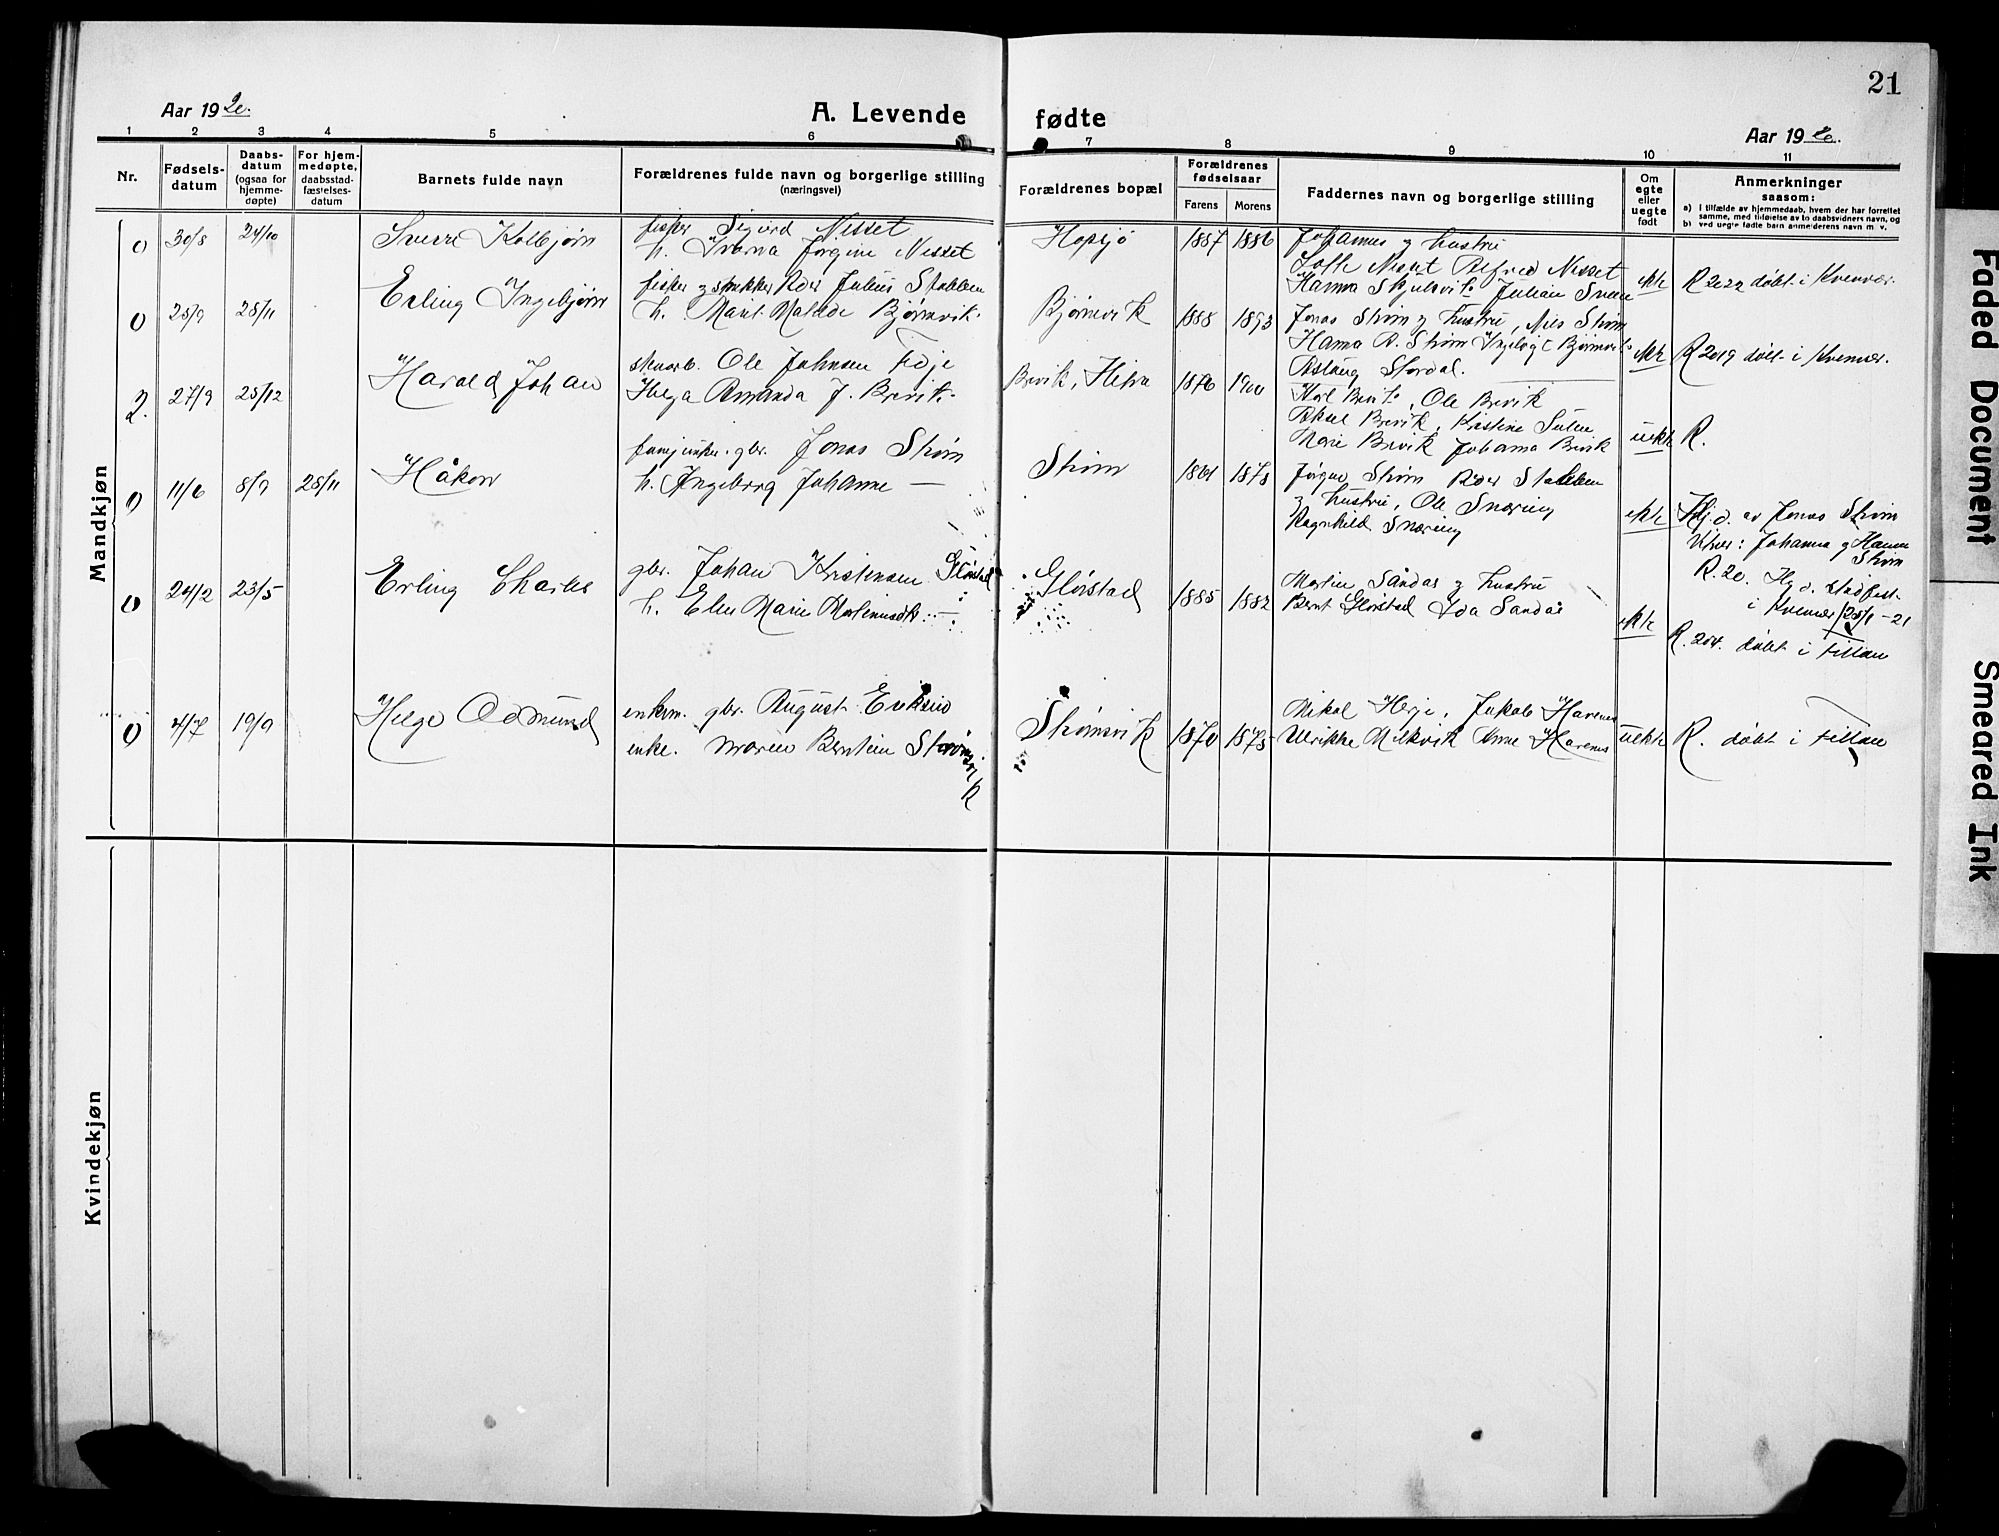 21
Aar 1920.
A. Levende fødte
Aar 1920.
1 2 3 4 5 6 7 8 9 10 11
Nr.
Fødsels-
datum
Daabs-
datum
(ogsaa for
hjemme-
døpte)
For hjem-
medøpte,
daabsstad-
fæstelses-
datum
Barnets fulde navn
Forældrenes fulde navn og borgerlige stilling
(næringsvei)
Forældrenes bopæl
Forældrenes
fødselsaar
Farens Morens
Faddernes navn og borgerlige stilling
Om
egte
eller
uegte
født
Anmerkninger
saasom:
a) I tilfælde av hjemmedaab, hvem der har forrettet
samme, med tilføielse av to daabsvidners navn, og
b) ved uegte fødte barn anmelderens navn m. v.
Mandkjøn
0 30/8 24/10 Sverre Kolbjørn
fisker Sigurd Nesset
h. Jørgine Nesset
Hopsjø 1887 1886
Johannes og hustru
Nesset Alfred Nesset
Hanna Julian
ekte
R 2022 døbt i Kvenvær.
0 25/9 28/11 Erling Ingebjørn
fisker og Peder Julius Stabben
h. Marit Matilde Bjørnvik.
Bjørnvik 1888 1893
Jonas Strøm og hustru, Nils Strøm
Hanna P. Strøm Ingeborg Bjørnvik
Aslaug Stordal.
ekte
R 2019 døbt i Kvenvær.
2. 27/9 25/12 Harald Johan
Ole Johnsen
Helga Amanda J. Brevik.
Brevik, Hitra 1876 1900
Karl Brevik, Ole Brevik
Aksel Brevik, Kristine
Marie Brevik Johanna Brevik
uekte R.
0 11/6 8/9 28/11 Håkon
gbr. Jonas Strøm
h. Ingeborg Johanne —
Strøm 1861 1873
Jørgine Strøm Peder Stabben
og hustru, Ole Snæring
Ragnhild Snæring
ekte
Hj.d. av Jonas Strøm
Vitner: Johanna og Hanna
Strøm
R. 20. Hj.d. stadfest.
i Kvenvær 25/1-21
0 24/2 23/5 Erling Charles
gbr. Johan Kristensen Glørstad
h. Elen Marie —
Glørstad 1885 1882
Martin Sandås og hustru
Bernt Glørstad Ida Sandås
ekte
R. 204. døbt i Fillan
0 4/7 19/9 Helge Odmund
enkm. gbr. August
enke. Maren Berntine Strømsvik
Strømsvik 1870 1875
Mikal Jakob
Ulrikke Anne
uekte
R. døbt i Fillan
Kvindekjøn
Faded Document
Smeared Ink